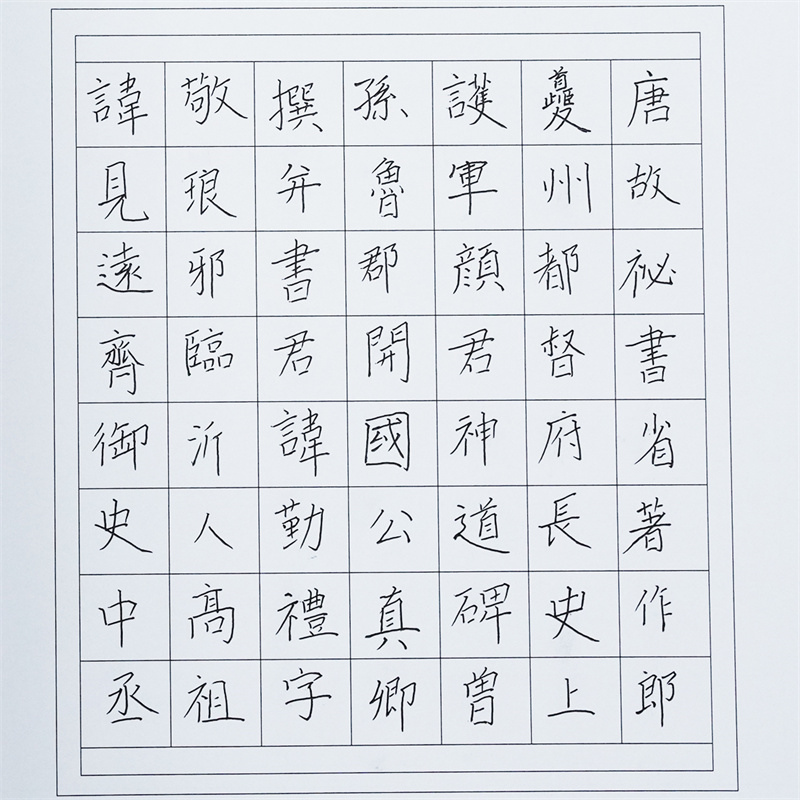 唐故祕書省著作郎
夔州都督府長史上
護軍顔君神道碑曽
孫魯郡開國公真卿
撰并書君諱勤禮字
敬琅邪臨沂人高祖
諱見遠齊御史中丞